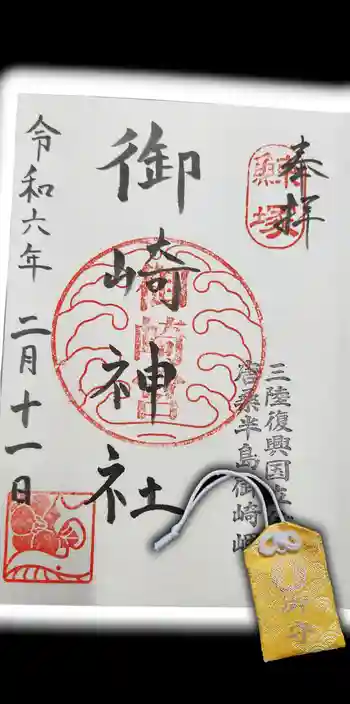 奉拝
三陸復興国立
唐桑半島御崎岬
御崎神社
令和六年 二月十一日
御守